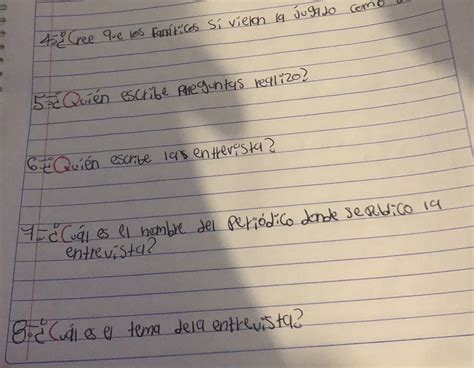 4=¿Cree que los fanáticos si vieran la jugado como
5=¿Quién escribe preguntas realizo?
6=¿Quién escribe las entrevista?
7=¿Cuál es el nombre del periódico donde se publico la
entrevista?
8=¿Cuál es el tema dela entrevista?